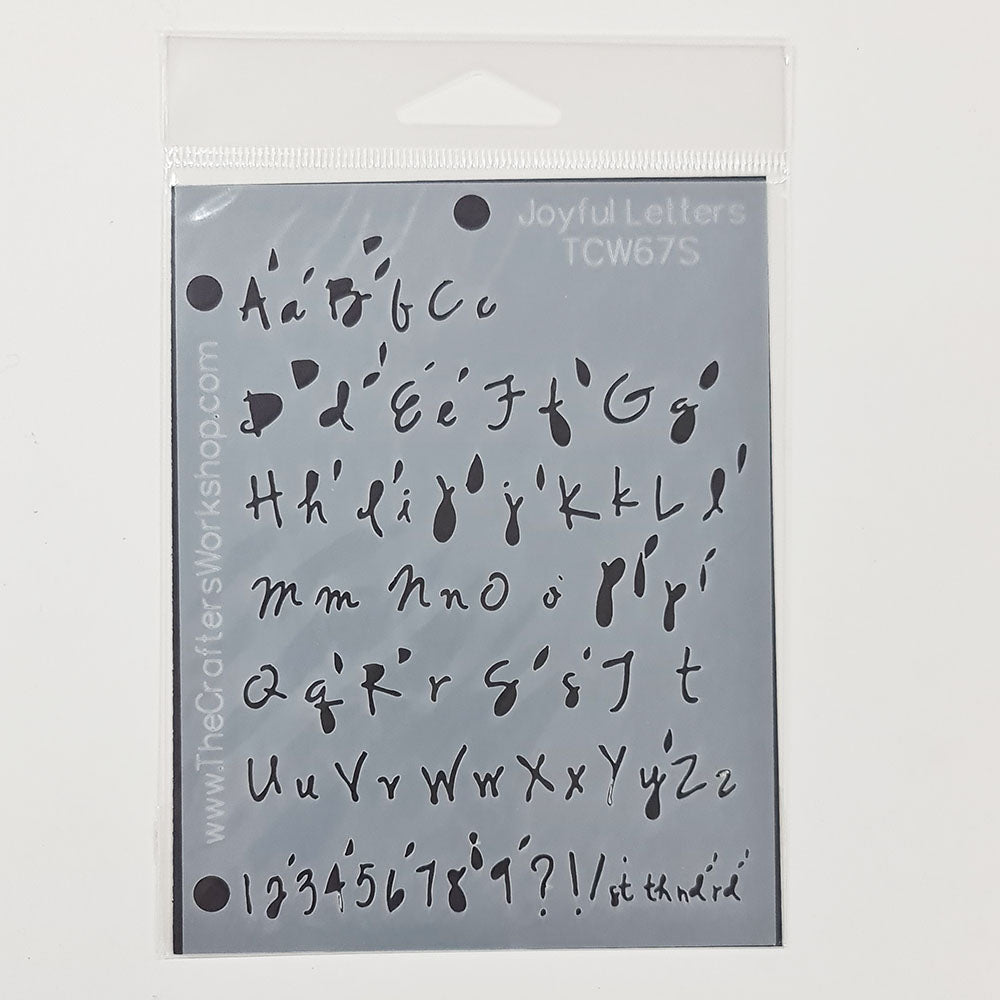 Joyful Letters
TCW67S
www.TheCraftersWorkshop.com
A a B b C c
D d E e F f G g
H h I i J j K k L l
M m N n O o P p
Q q R r S s T t
U u V v W w X x Y y Z z
1 2 3 4 5 6 7 8 9 ? ! / st th nd rd